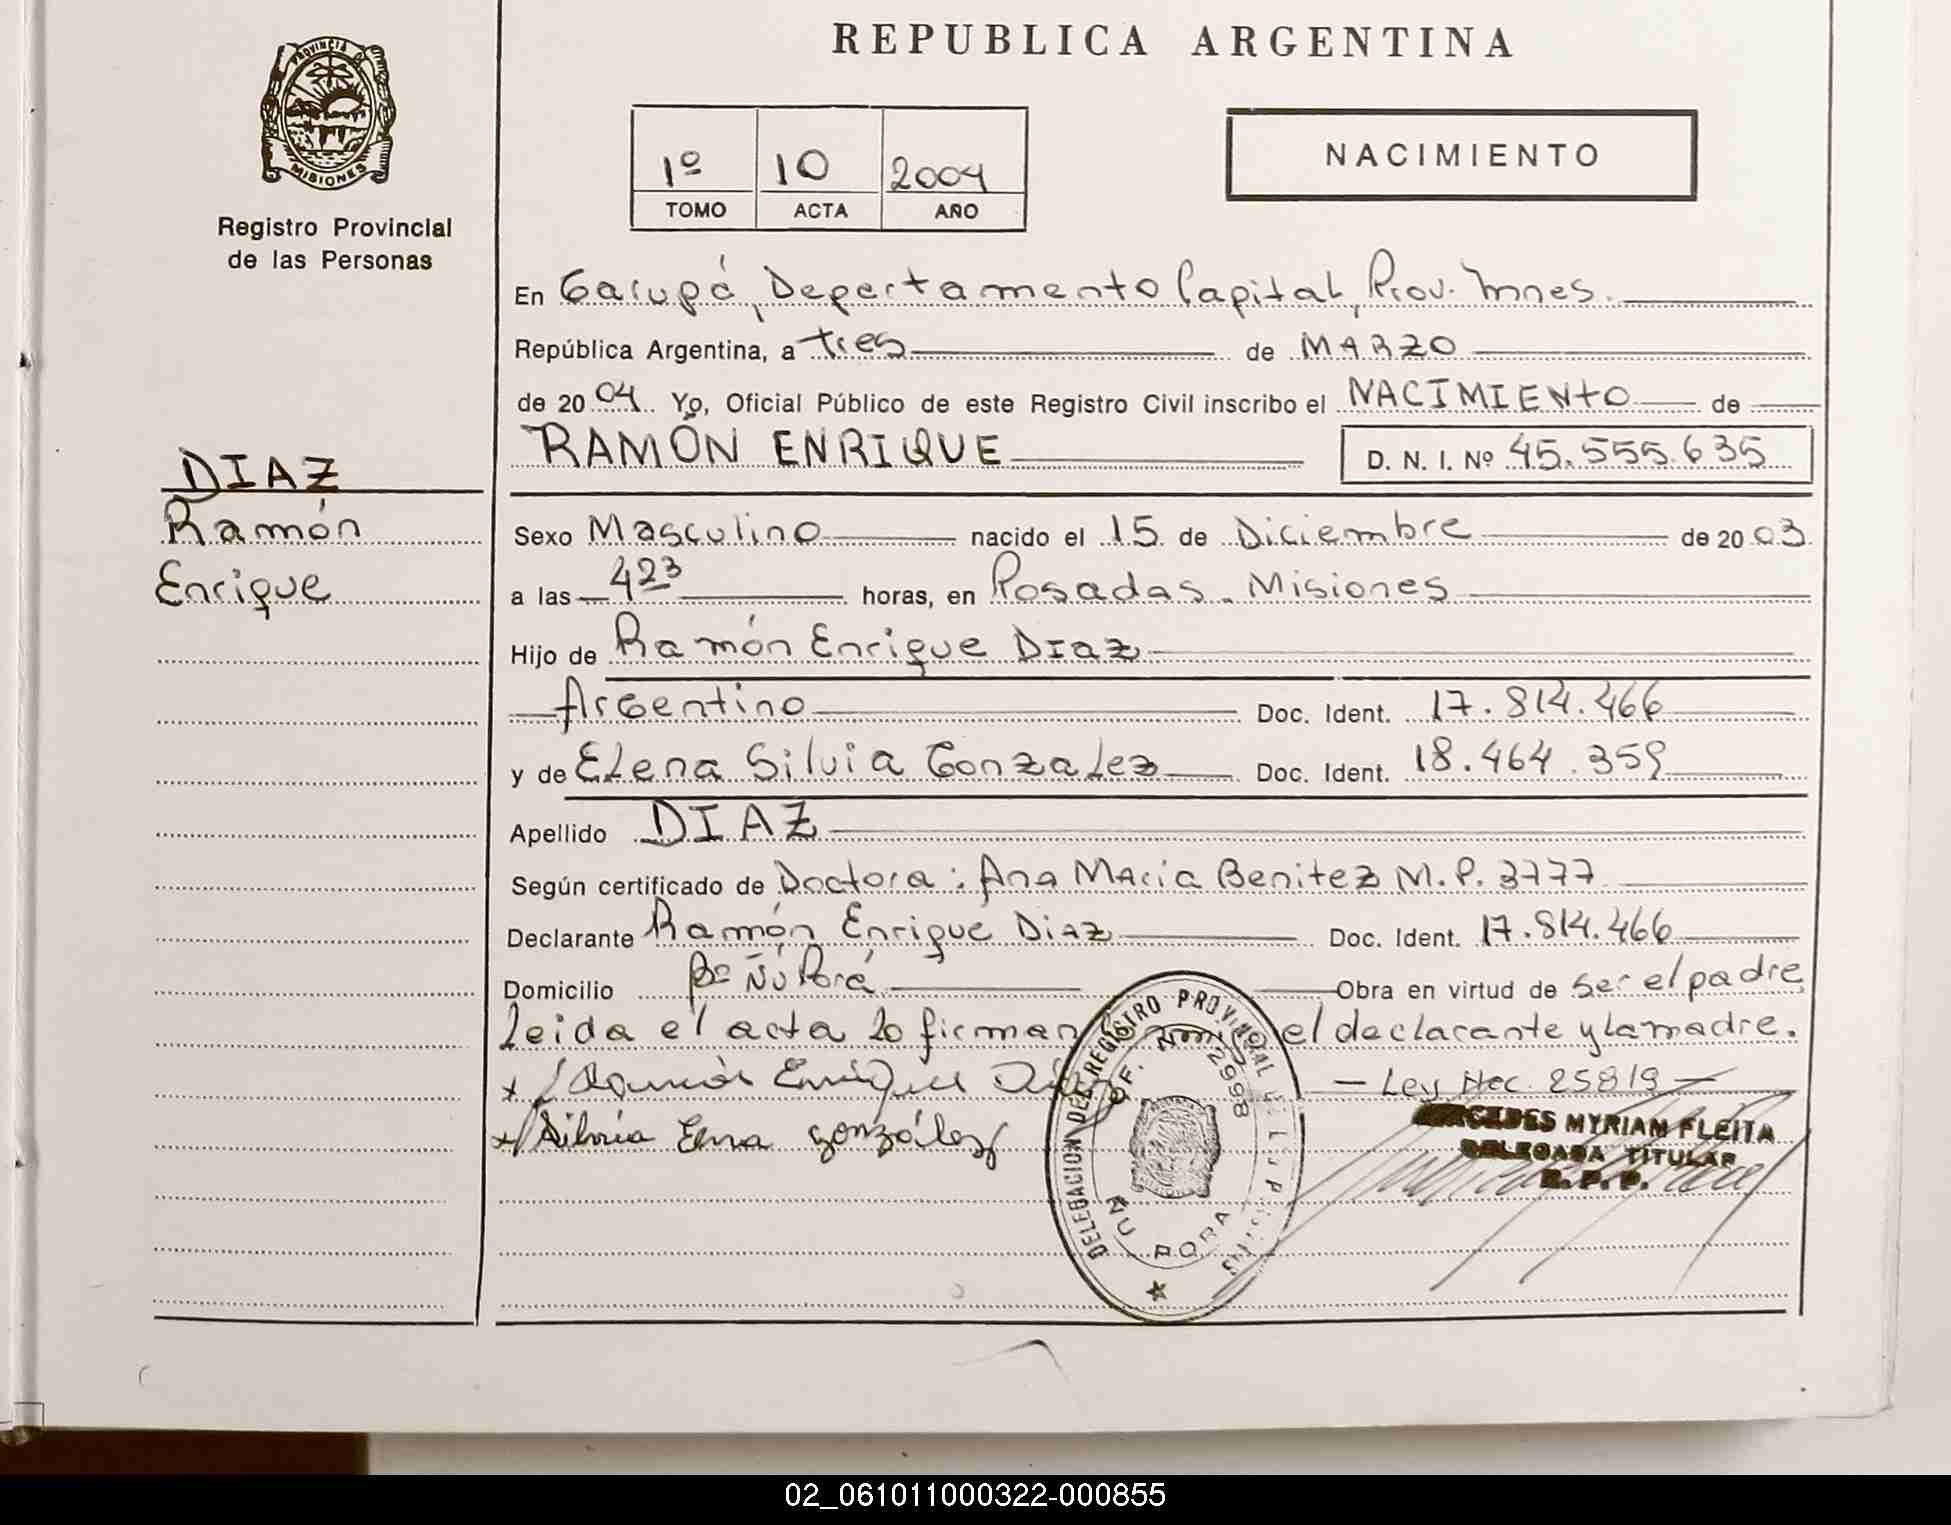 REPUBLICA ARGENTINA
PROVINCIA DE MISIONES
Registro Provincial
de las Personas
1º 10 2004
TOMO ACTA AÑO
NACIMIENTO
En Garupá, Departamento Capital, Prov. Mnes.
República Argentina, a tres de MARZO
de 2004. Yo, Oficial Público de este Registro Civil inscribo el NACIMIENTO de
RAMÓN ENRIQUE D. N. I. Nº 45.555.635
DIAZ
Ramón
Enrique
Sexo Masculino nacido el 15 de Diciembre de 2003
a las 4 23 horas, en Posadas - Misiones
Hijo de Ramón Enrique Diaz
Argentino Doc. Ident. 17.814.466
y de Elena Silvia Gonzalez Doc. Ident. 18.464.359
Apellido DIAZ
Según certificado de Doctora: Ana Maria Benitez M.P. 3777
Declarante Ramón Enrique Diaz Doc. Ident. 17.814.466
Domicilio Bº Ñú Porá Obra en virtud de ser el padre
Leida el acta lo firman el declarante y la madre.
x Ramón Enrique Díaz - Ley Nac. 25819 -
x Silvia Elena González
MERCEDES MYRIAM FLEITA
DELEGADA TITULAR
R. P. P.
DELEGACION DEL REGISTRO PROVINCIAL DE LAS P
OF. 2998
ÑU PORA
02_061011000322-000855